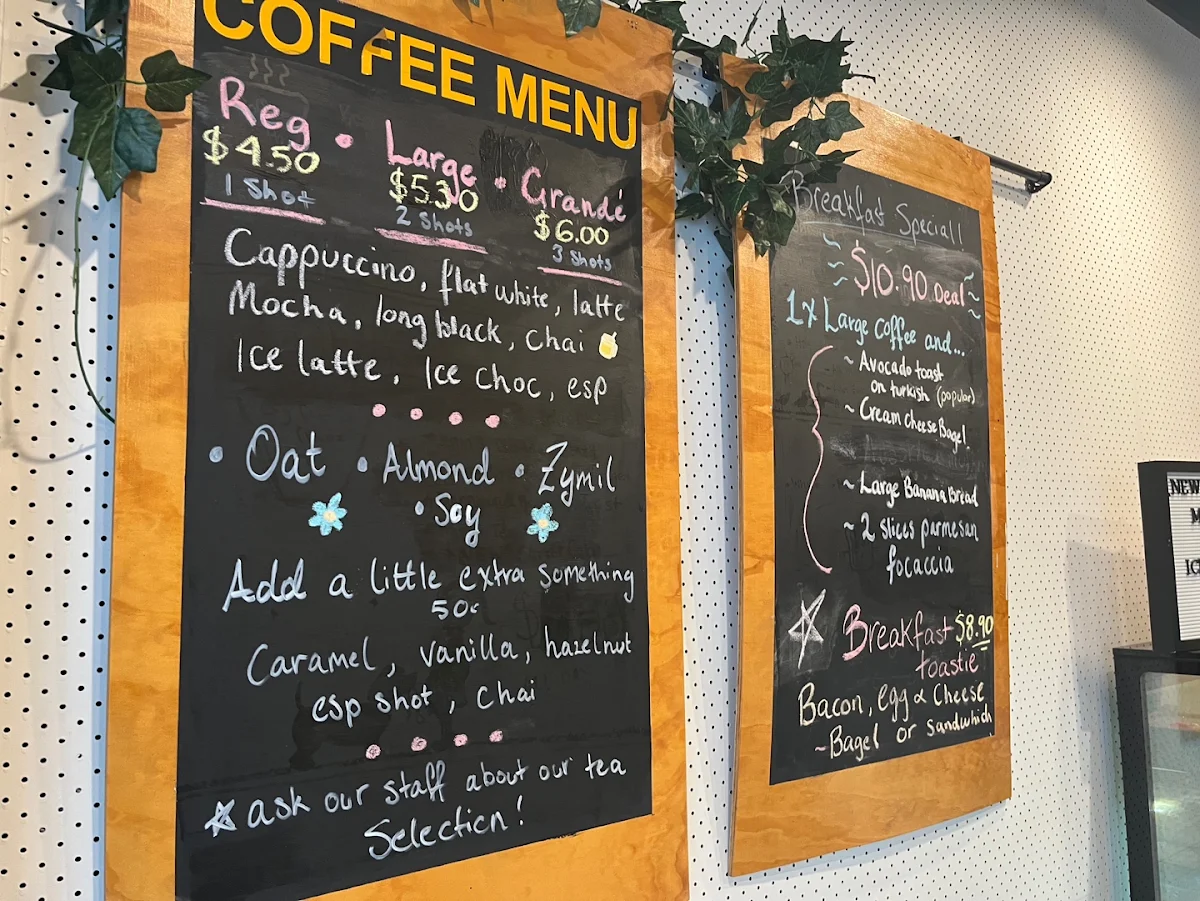 COFFEE MENU
Reg • Large • Grandé
$4.50 $5.30 $6.00
1 Shot 2 Shots 3 Shots
Cappuccino, flat white, latte
Mocha, long black, chai
Ice latte, Ice choc, esp
• Oat • Almond • Zymil
• Soy
Add a little extra something
50c
Caramel, vanilla, hazelnut
esp shot, Chai
ask our staff about our tea
Selection!
Breakfast Special!
$10.90 Deal
1x Large Coffee and...
~ Avocado toast
on turkish (popular)
~ Cream cheese Bagel
~ Large Banana Bread
~ 2 slices parmesan
focaccia
Breakfast $8.90
toastie
Bacon, egg & Cheese
~Bagel or Sandwhich
NEW
M
IC